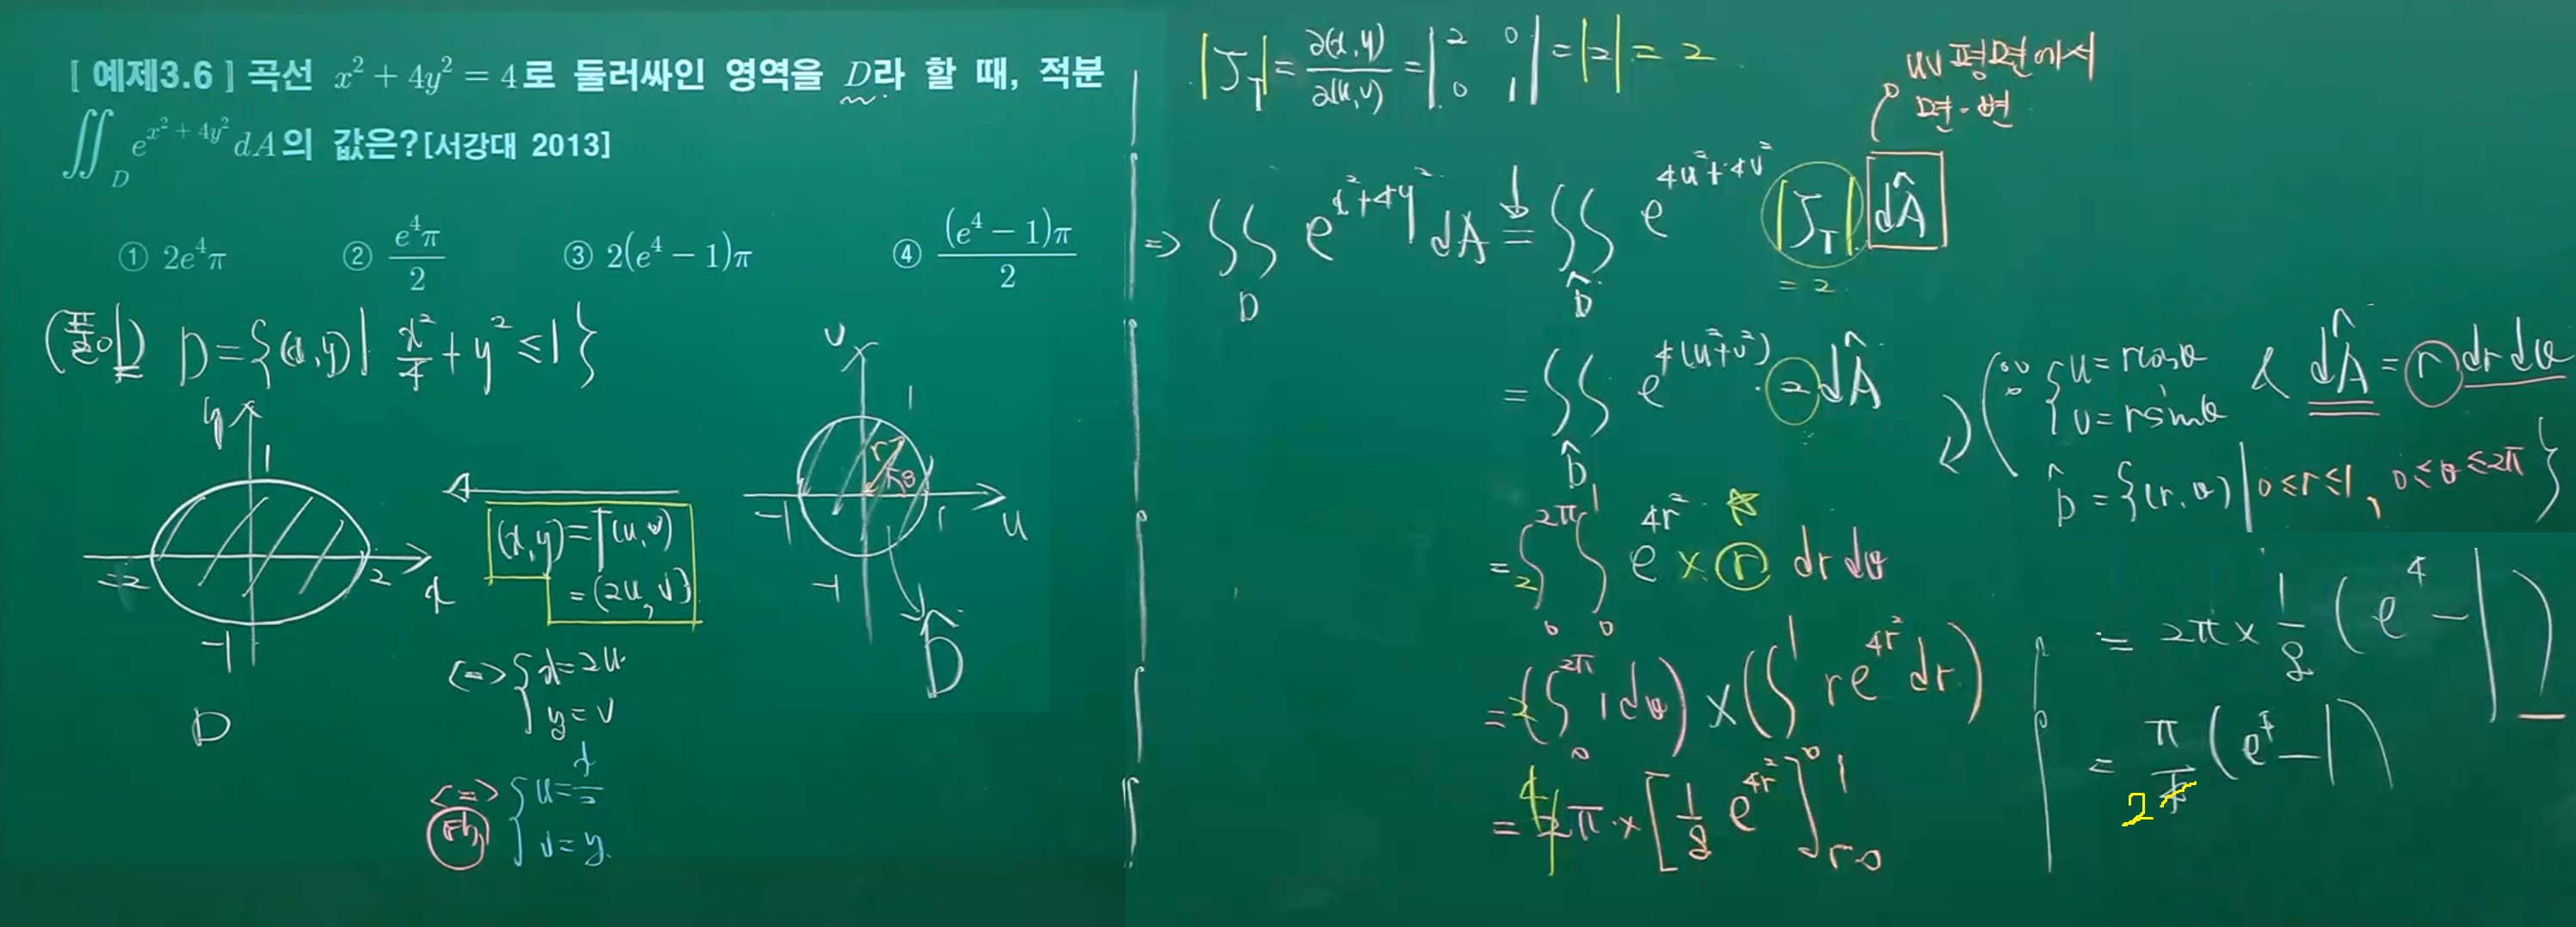 [ 예제3.6 ] 곡선 x² + 4y² = 4로 둘러싸인 영역을 D라 할 때, 적분
∬_D e^{x² + 4y²} dA의 값은?[서강대 2013]
① 2e⁴π ② e⁴π/2 ③ 2(e⁴ − 1)π ④ (e⁴ − 1)π/2
(풀이) D = {(x,y) | x²/4 + y² ≤ 1}
y
1
-2 2 x
-1
D
(x,y) = T(u,v)
= (2u, v)
<=> { x = 2u
y = v
<=> { u = x/2
v = y
v
1
r θ
-1 1 u
-1
D̂
|J_T| = ∂(x,y)/∂(u,v) = |2 0; 0 1| = |2| = 2
uv평면에서
=> ∬_D e^{x²+4y²} dA = ∬_D̂ e^{4u²+4v²} |J_T| dÂ
= 2
= ∬_D̂ e^{4(u²+v²)} · 2 dÂ
(∵ { u = rcosθ
v = rsinθ & dÂ = r dr dθ
D̂ = {(r,θ) | 0 ≤ r ≤ 1, 0 ≤ θ ≤ 2π}
= 2 ∫_0^{2π} ∫_0^1 e^{4r²} × r dr dθ
= 2(∫_0^{2π} 1 dθ) × (∫_0^1 r e^{4r²} dr)
= 4 2π × [1/8 e^{4r²}]_{r=0}^1
= 2π × 1/8 (e⁴ − 1)
= π/4 (e⁴ − 1)
2